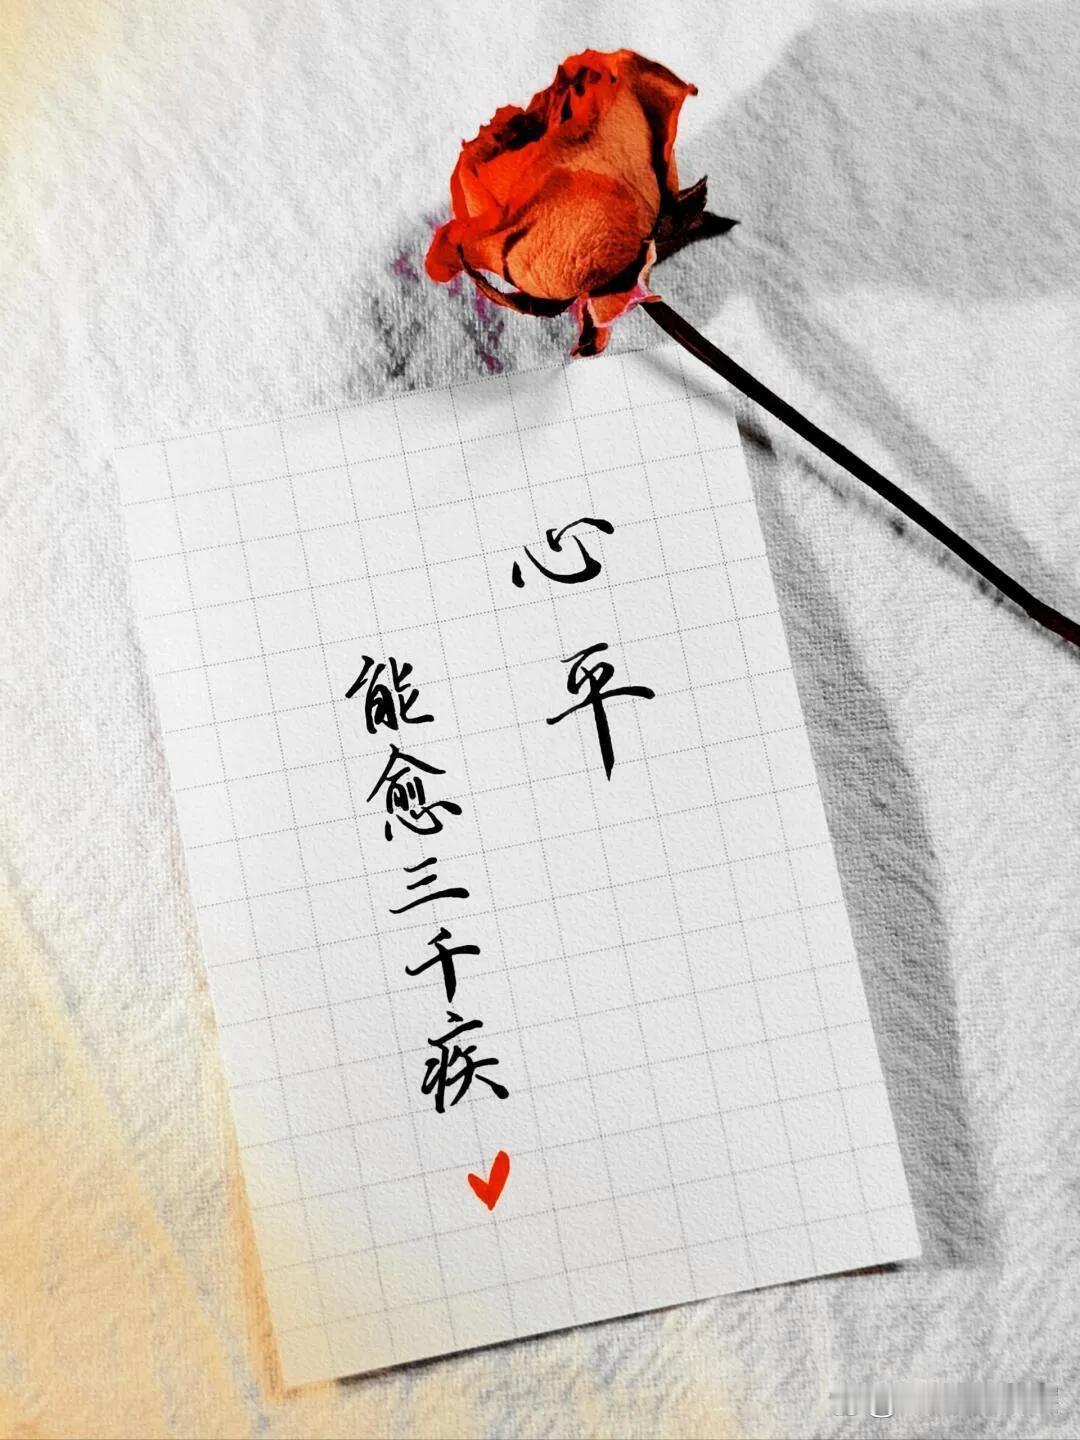 心平
能愈三千疾